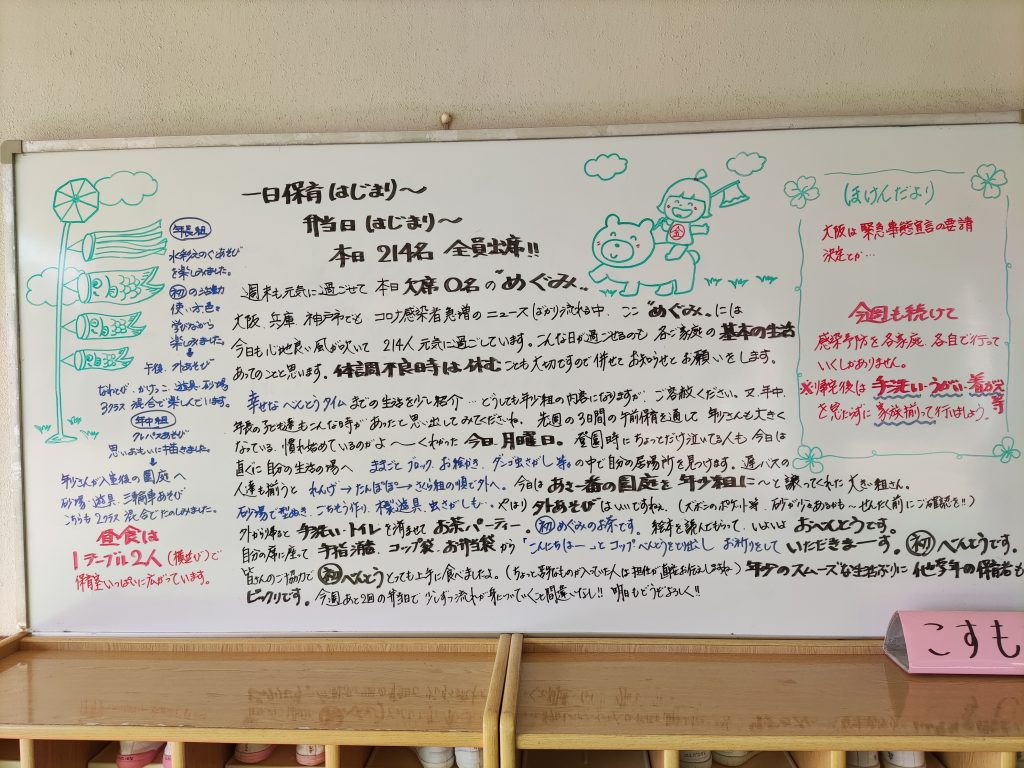 一日保育はじまり〜
弁当日はじまり〜
本日 214名 全員出席!!
週末も元気に過ごせて 本日欠席0名の"めぐみ"。
大阪、兵庫、神戸市でも コロナ感染者急増のニュースばかり流れる中、ここ"めぐみ"には
今日も心地良い風が吹いて 214人元気に過ごしています。こんな日が過ごせるのも 各ご家庭の基本の生活
あってのことと思います。体調不良時は休むことも大切ですので併せておねがいします。
幸せなべんとうタイムまでの生活を少し紹介…どうしても年少組の内容になりますが、ご容赦ください。又、年中、
年長の子ども達もこんな時が、あったと思い出してみてくださいね。先週の3日間の午前保育を通して 年少さんも大きく
なっている、慣れ始めているのがよ〜くわかった今日、月曜日。登園時にちょっとだけ泣いてる人も今日は
直ぐに自分の生活の場へ ままごと、ブロック、お絵かき、ダンゴ虫さがし等。の中で自分の居場所を見つけます。遅バスの
人達も揃うと れんげ→たんぽぽ→さくら組の順で外へ。今日はあさ一番の園庭を年少組に〜と譲ってくれた大きい組さん。
砂場で型ぬき、ごちそう作り、 道具、虫さがしも…。やはり外あそびはいいですね。(ズボンのポケット等、砂が入る あるかも〜せんたく前にご確認を!!)
外から帰ると 手洗い・トイレを済ませてお茶パーティー。初めぐみのお茶です。絵本を読んでもらって、いよいよおべんとうです。
自分の席に座って 手指消毒、コップ袋、お弁当袋から「こんにちはー」とコップ、べんとうをとり出し お祈りをして いただきまーす。初べんとうです。
皆さんのご協力で初べんとうとっても上手に食べましたよ。年少のスムーズな生活ぶりに他学年の保育者も
ビックリです。今週あと2回の弁当で少しずつ流れが身についていくこと間違いなし!! 明日もどうぞよろしく!!
年長組
水彩えのぐあそび
を楽しみました。
初の活動
使い方、色を
学びながら
楽しみました。
午後、外あそび
なわとび、かけっこ、道具、砂場
3クラス 混合で楽しんでいます。
年中組
クレパスあそび
思いおもいに描きました。
年少さんが入室後の園庭へ
砂場、道具、三輪車あそび
こちらも2クラス混合でたのしみました。
昼食は
1テーブル2人(横並び)で
保育室いっぱいに広がっています。
金
ほけんだより
大阪は緊急事態宣言の要請
決定とか…
今週も続けて
感染予防を各家庭、各自で行って
いくしかありません。
※帰宅後は手洗い・うがい・着がえ等
を忘れずに家族揃って行いましょう。
こすも